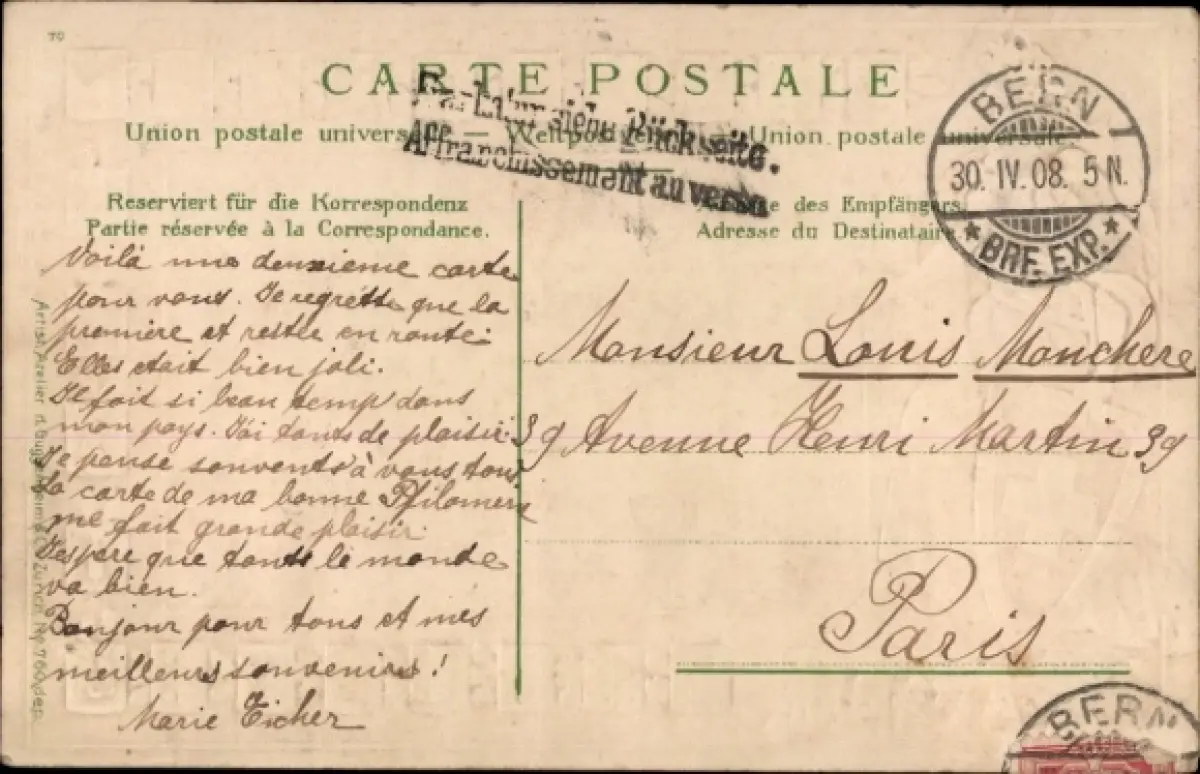 70
CARTE POSTALE
Union postale universelle — Weltpostverein — Union postale universelle.
siehe Rückseite.
Affranchissement au verso
BERN
30. IV. 08. 5 N.
BRF. EXP.
Reserviert für die Korrespondenz
Partie réservée à la Correspondance.
des Empfängers.
Adresse du Destinataire.
Voilà une deuxieme carte
pour vous. Je regrette que la
première et restle en route.
Elles etait bien joli.
Il fait si beau temp dans
mon pays. J'ai tants de plaisir.
Je pense souvents à vous tous
La carte de ma bonne Pfilomene
me fait grande plaisir.
J'espere que touts le monde
va bien.
Bonjour pour tous et mes
meilleurs souvenirs!
Marie Eicher
Monsieur Louis Monchere
39 Avenue Henri Martin 39
Paris
BERN